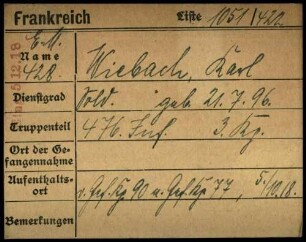 Frankreich Liste 1051/422
E.M.
428.
Name Wiebach, Karl
Dienstgrad Sold. geb. 21.7.96.
Truppenteil 476. Inf. 3. Kp.
Ort der Ge-
fangennahme
Aufenthalts-
ort v. Gef. Kp 90 n. Gef. Kp 77, 5./10.18.
Bemerkungen